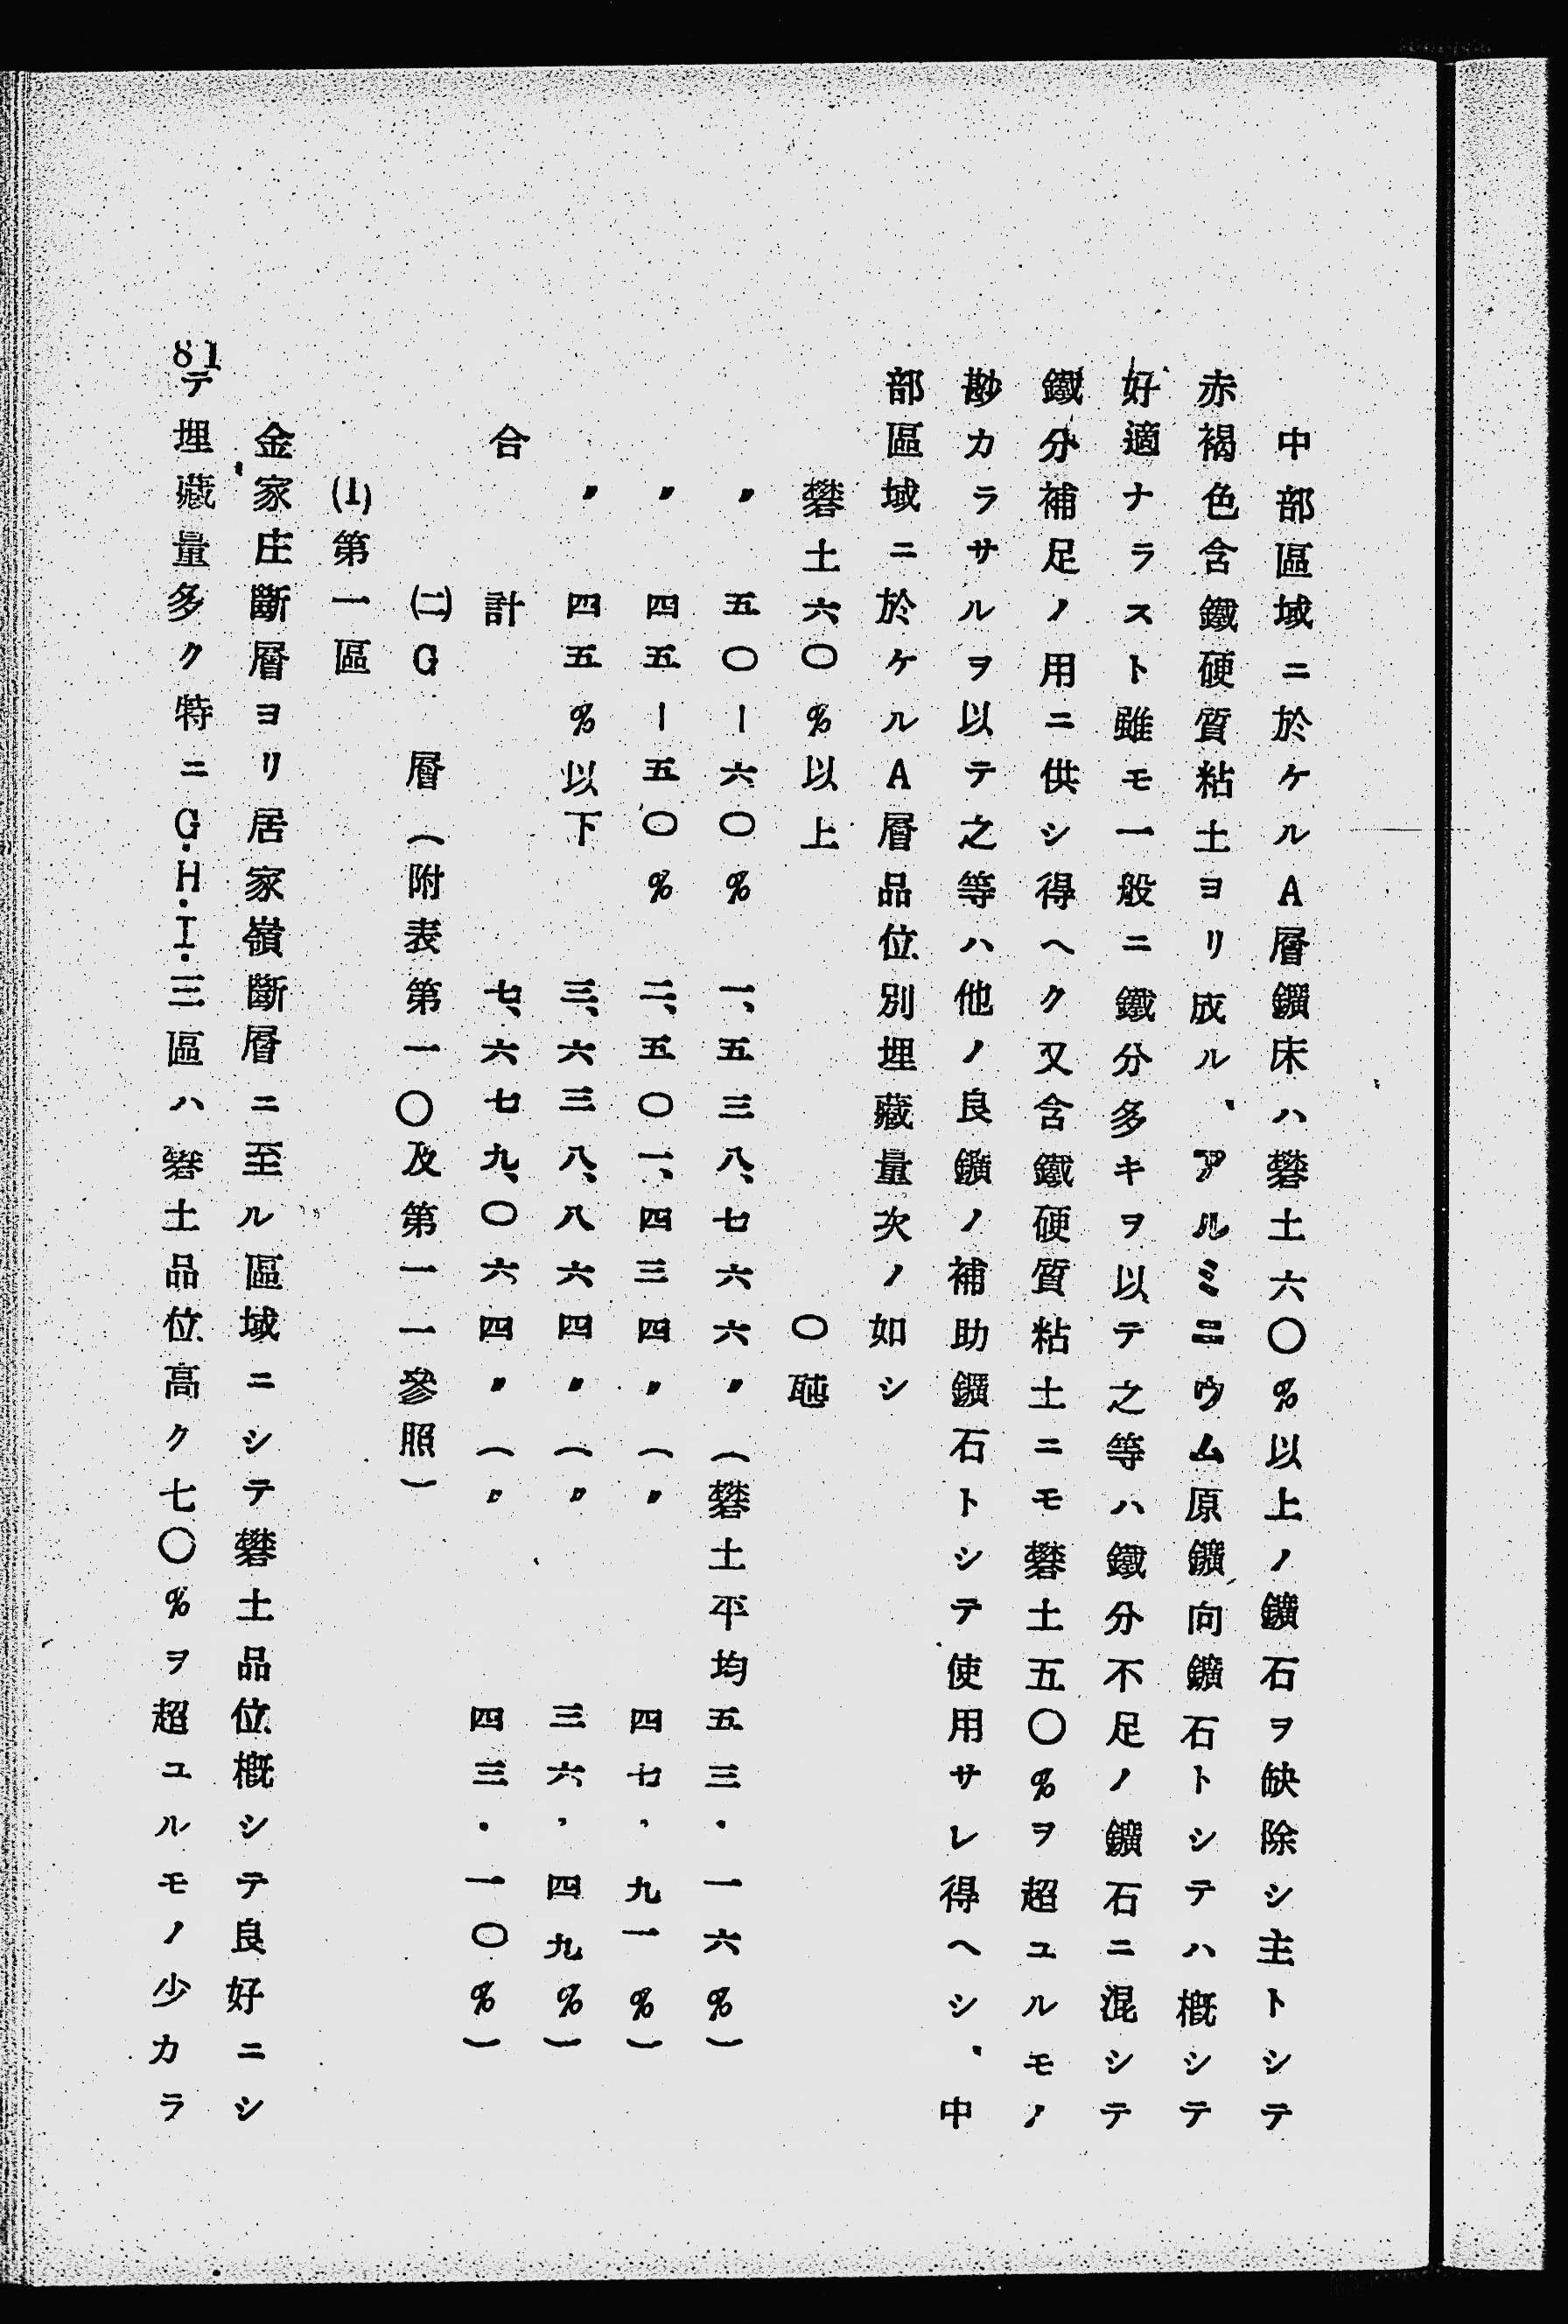 中部區域ニ於ケルA層鑛床ハ礬土六〇%以上ノ鑛石ヲ缺除シ主トシテ
赤褐色含鐵硬質粘土ヨリ成ル、アルミニウム原鑛向鑛石トシテハ概シテ
好適ナラスト雖モ一般ニ鐵分多キヲ以テ之等ハ鐵分不足ノ鑛石ニ混シテ
鐵分補足ノ用ニ供シ得ヘク又含鐵硬質粘土ニモ礬土五〇%ヲ超ユルモノ
尠カラサルヲ以テ之等ハ他ノ良鑛ノ補助鑛石トシテ使用サレ得ヘシ、中
部區域ニ於ケルA層品位別埋藏量次ノ如シ
礬土六〇%以上 〇瓲
〃 五〇ー六〇% 一、五三八、七六六〃(礬土平均五三・一六%)
〃 四五ー五〇% 二、五〇一、四三四〃(〃 四七・九一%)
〃 四五%以下 三、六三八、八六四〃(〃 三六・四九%)
合計 七、六七九、〇六四〃(〃 四三・一〇%)
(二)G層(附表第一〇及第一一參照)
(1)第一區
金家庄斷層ヨリ居家嶺斷層ニ至ル區域ニシテ礬土品位概シテ良好ニシ
テ埋藏量多ク特ニG・H・I・三區ハ礬土品位高ク七〇%ヲ超ユルモノ少カラ
81